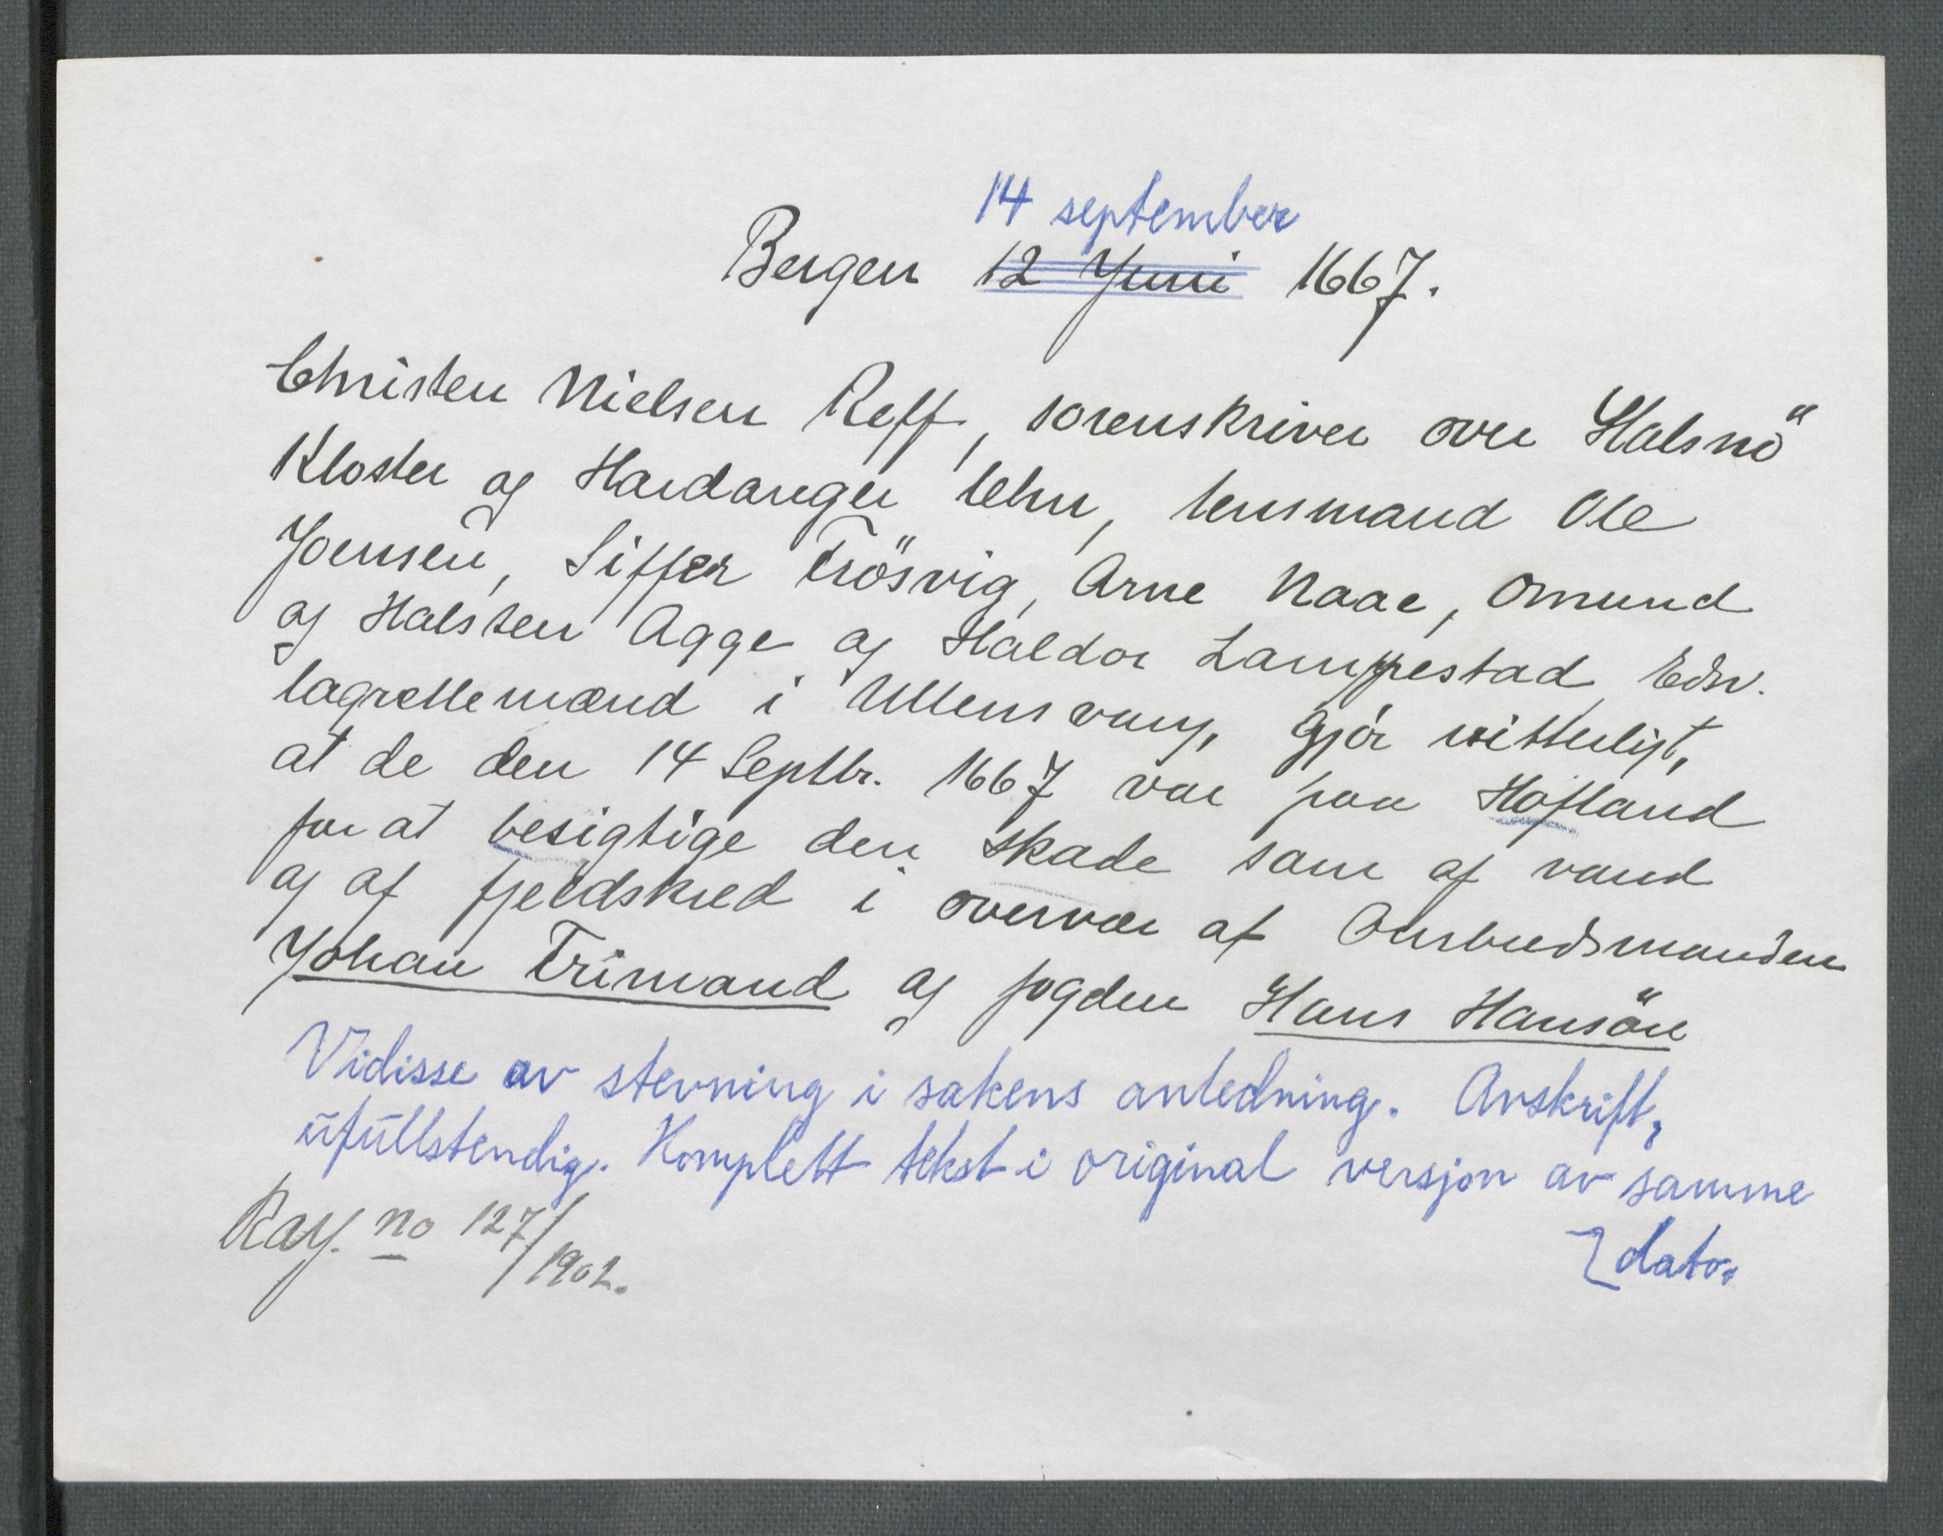 14 september
Bergen 12 Juni 1667.
Christen Nielsen Reff, sorenskriver over Halsnö
Kloster og Hardanger lehn, lensmand Ole
Joensen, Siffer Trösvig, Arne Naae, Omund
og Halsten Agge og Haldor Lampestad Edsv.
lagrettemænd i Ullensvang, gjör vitterligt,
at de den 14 Septbr. 1667 var paa Hofland
for at besigtige den skade som af vand
og af fjeldskred i overvær af Ombudsmanden
Johan Frimand og fogden Hans Hansön
Vidisse av stevning i sakens anledning. Avskrift,
ufullstendig. Komplett tekst i original versjon av samme
dato.
Ray. no 127/1902.